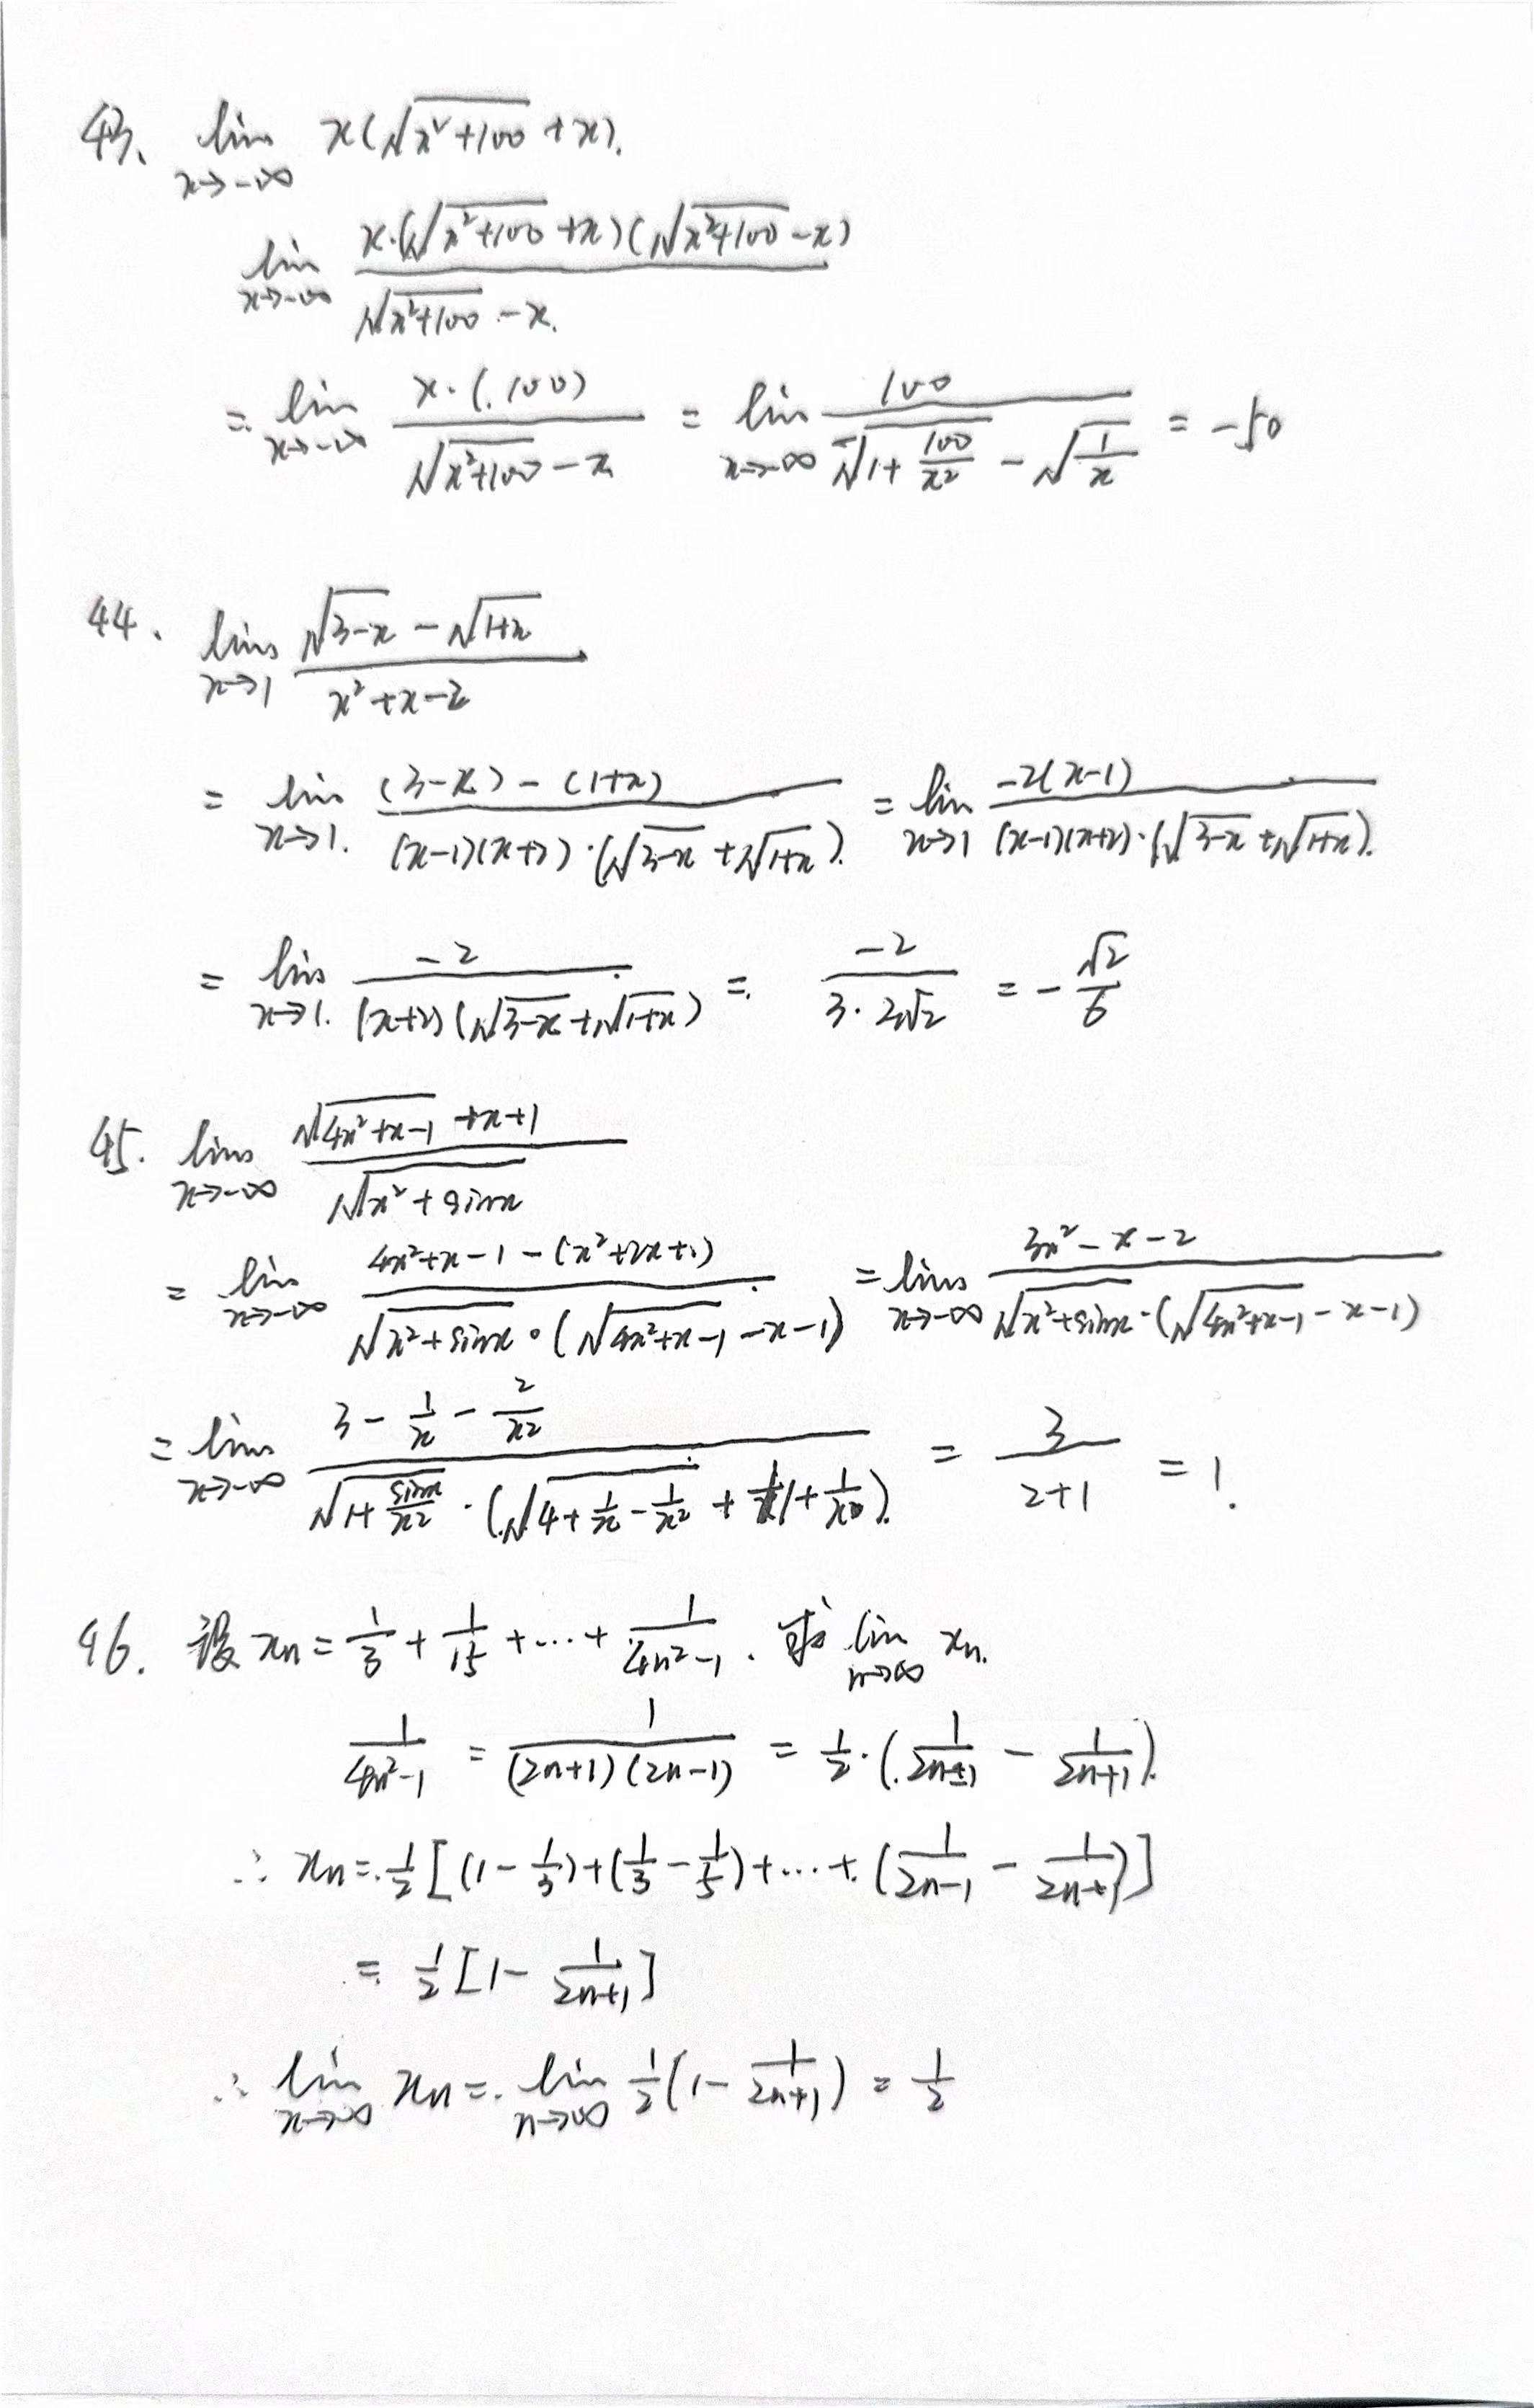 43. lim_{x→-∞} x(√(x²+100) +x).
lim_{x→-∞} x·(√(x²+100) +x)(√(x²+100) -x) / (√(x²+100) -x.)
= lim_{x→-∞} x·(.100) / (√(x²+100) -x) = lim_{x→-∞} 100 / (-√(1+100/x²) - √(1/x)) = -50
44. lim_{x→1} (√(3-x) - √(1+x)) / (x²+x-2)
= lim_{x→1.} ((3-x) - (1+x)) / ((x-1)(x+2)·(√(3-x) +√(1+x)).) = lim_{x→1} -2(x-1) / ((x-1)(x+2)·(√(3-x) +√(1+x)).)
= lim_{x→1.} -2 / ((x+2)(√(3-x)+√(1+x))) = -2 / (3·2√2) = -√2/6
45. lim_{x→-∞} (√(4x²+x-1) +x+1) / √(x²+sinx)
= lim_{x→-∞} (4x²+x-1-(x²+2x+1)) / (√(x²+sinx)·(√(4x²+x-1) -x-1)) = lim_{x→-∞} (3x²-x-2) / (√(x²+sinx)·(√(4x²+x-1) -x-1))
= lim_{x→-∞} (3 - 1/x - 2/x²) / (√(1+sinx/x²)·(√(4+1/x-1/x²) + 1+1/x).) = 3/(2+1) = 1.
46. 设 xn = 1/3 + 1/15 +…+ 1/(4n²-1). 求 lim_{n→∞} xn.
1/(4n²-1) = 1/((2n+1)(2n-1)) = 1/2·(1/(2n-1) - 1/(2n+1)).
∴ xn = 1/2[(1-1/3)+(1/3-1/5)+…+(1/(2n-1) - 1/(2n+1))]
= 1/2[1- 1/(2n+1)]
∴ lim_{n→∞} xn = lim_{n→∞} 1/2(1- 1/(2n+1)) = 1/2